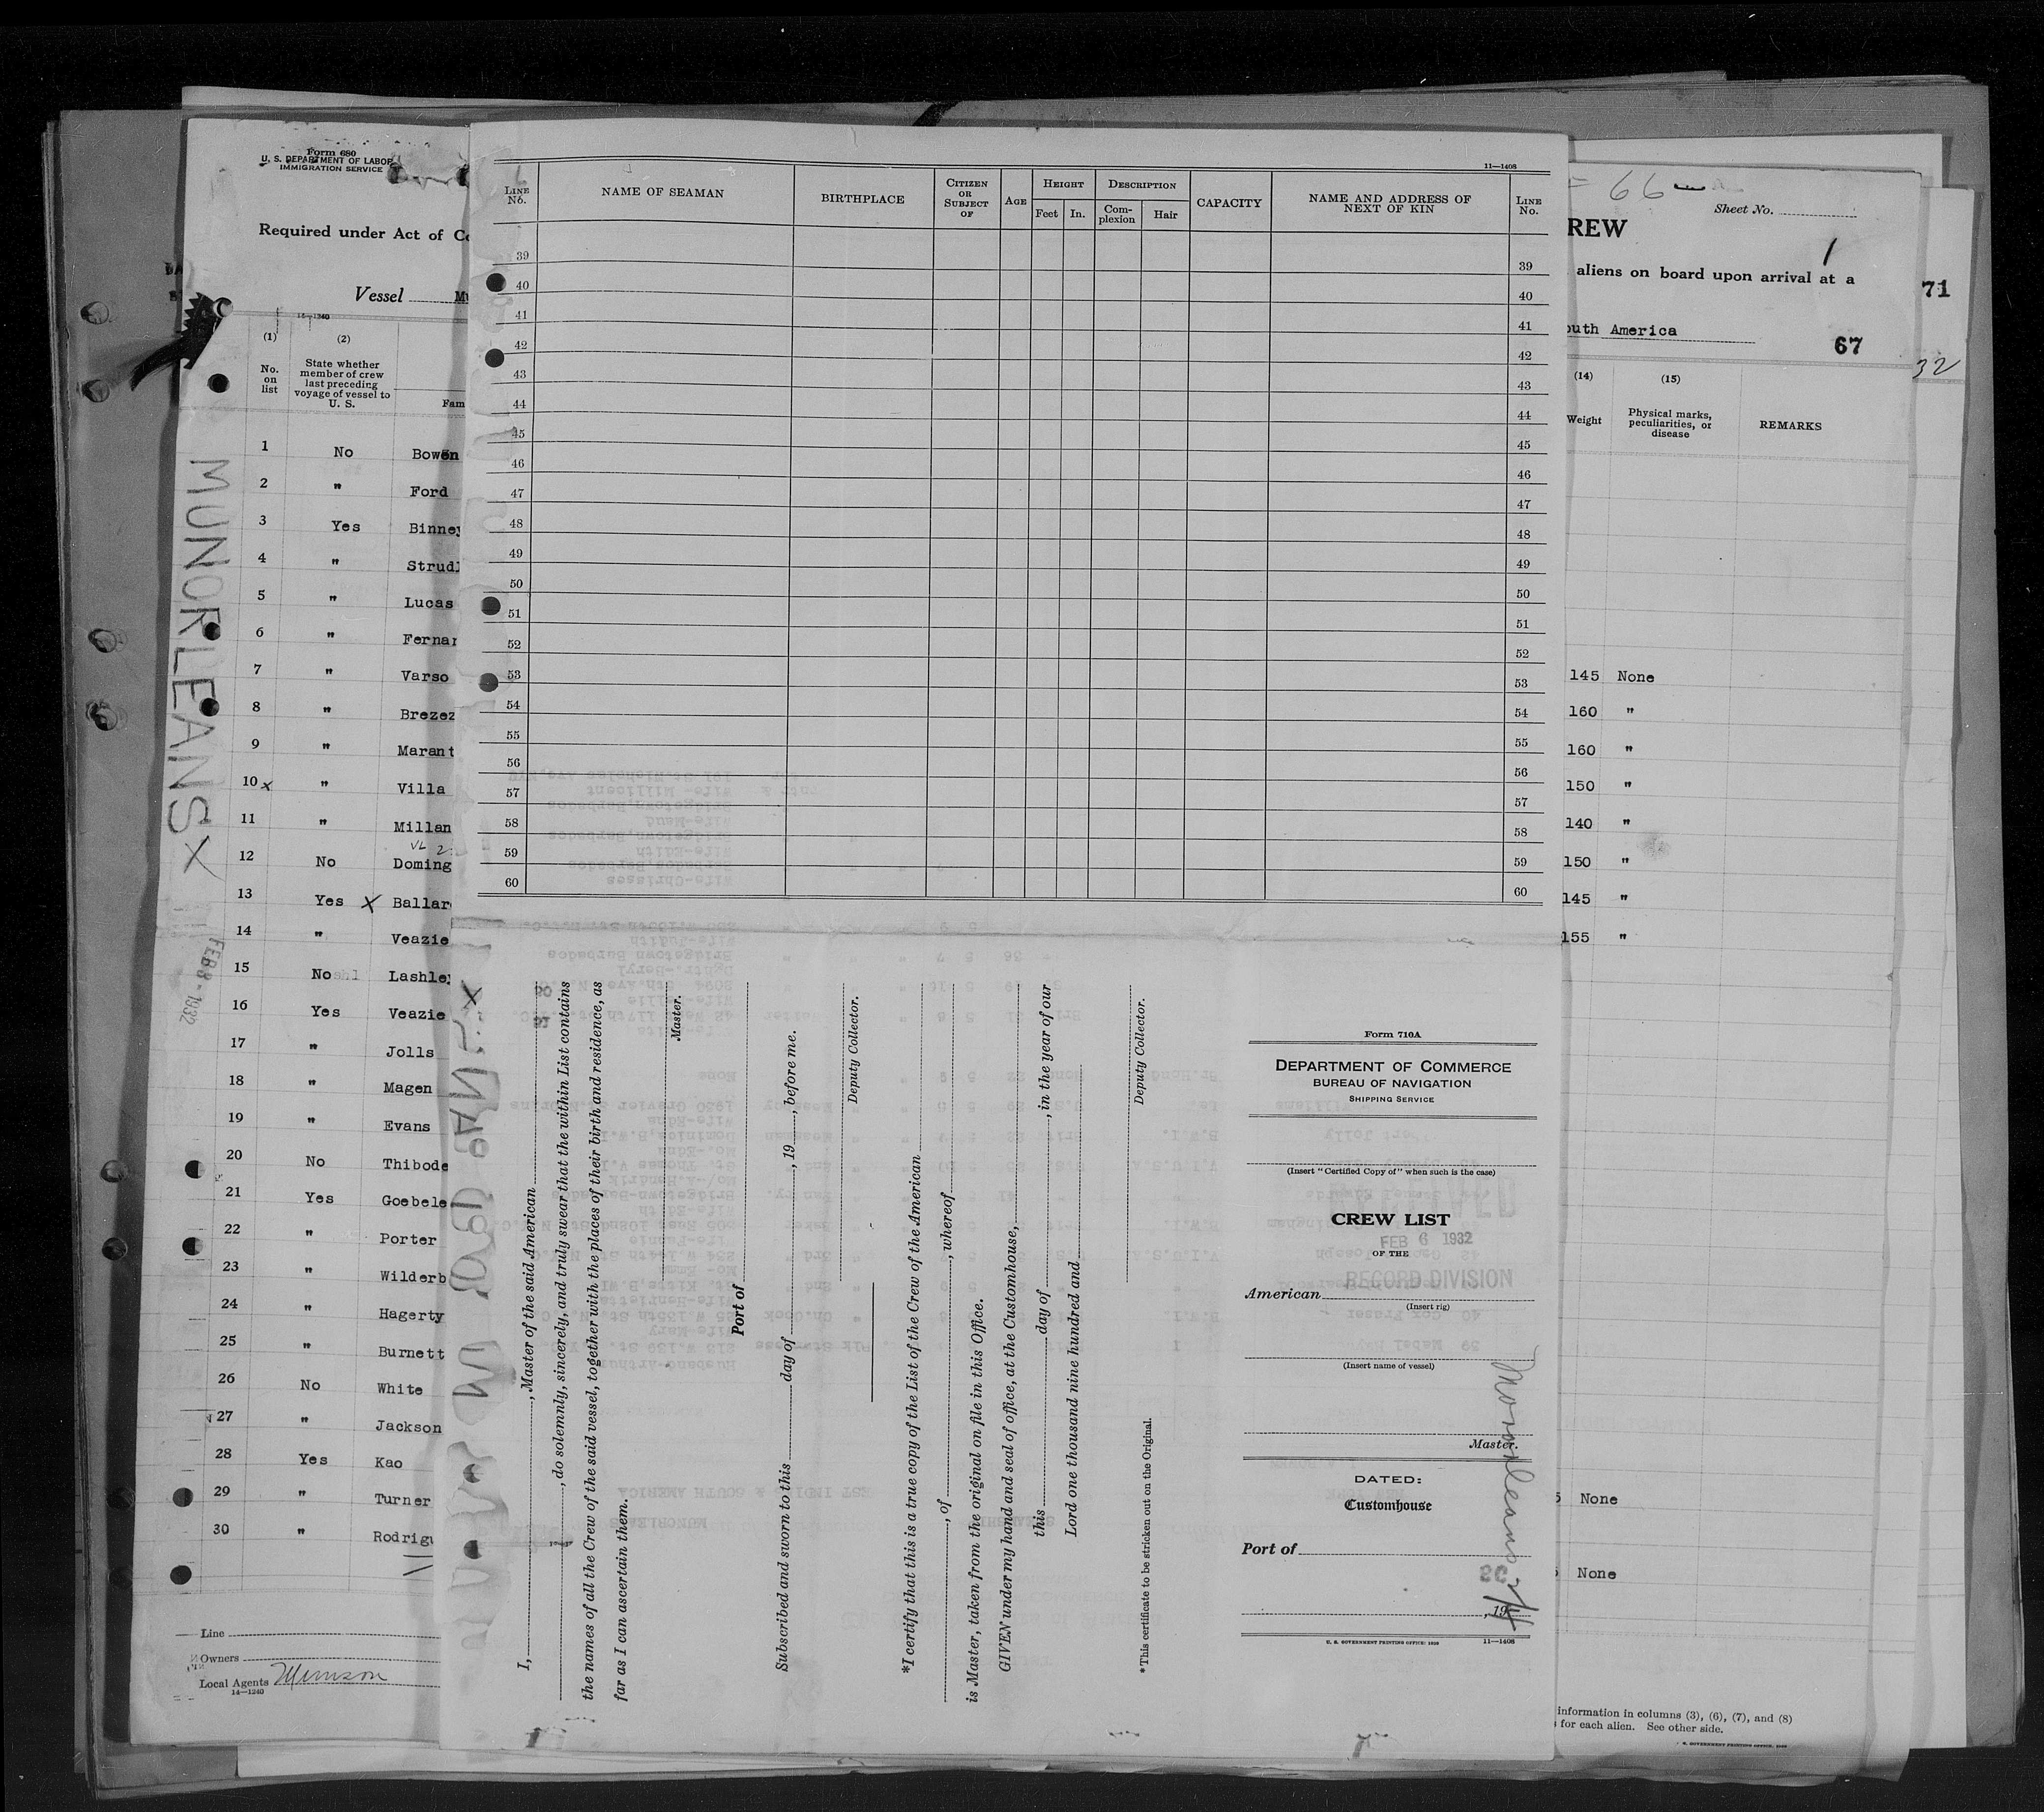 Form 680
U. S. DEPARTMENT OF LABOR
IMMIGRATION SERVICE
Required under Act of Co
Vessel
14-1240
(1) (2)
No. on list
State whether member of crew last preceding voyage of vessel to U. S.
Fam
1 No Bowen
2 " Ford
3 Yes Binney
4 " Strudl
5 " Lucas
6 " Fernan
7 " Varso
8 " Brezez
9 " Marant
10 x " Villa
11 " Millan
12 No Doming
13 Yes X Ballar
14 " Veazie
15 No Lashley
16 Yes Veazie
17 " Jolls
18 " Magen
19 " Evans
20 No Thibode
21 Yes Goebele
22 " Porter
23 " Wilderb
24 " Hagerty
25 " Burnett
26 No White
27 " Jackson
28 Yes Kao
29 " Turner
30 " Rodrigu
Line
Owners
Local Agents Munson
14—1240
MUNORLEANS X
FEB 8 - 1932
11—1408
LINE No. NAME OF SEAMAN BIRTHPLACE CITIZEN OR SUBJECT OF AGE HEIGHT Feet In. DESCRIPTION Complexion Hair CAPACITY NAME AND ADDRESS OF NEXT OF KIN LINE No.
39 39
40 40
41 41
42 42
43 43
44 44
45 45
46 46
47 47
48 48
49 49
50 50
51 51
52 52
53 53
54 54
55 55
56 56
57 57
58 58
59 59
60 60
I, , Master of the said American
, do solemnly, sincerely, and truly swear that the within List contains
the names of all the Crew of the said vessel, together with the places of their birth and residence, as
far as I can ascertain them.
Master.
Port of
Subscribed and sworn to this day of , 19 , before me.
Deputy Collector.
*I certify that this is a true copy of the List of the Crew of the American
, of , whereof
is Master, taken from the original on file in this Office.
GIVEN under my hand and seal of office, at the Customhouse,
this day of , in the year of our
Lord one thousand nine hundred and
Deputy Collector.
*This certificate to be stricken out on the Original.
Form 710A
DEPARTMENT OF COMMERCE
BUREAU OF NAVIGATION
SHIPPING SERVICE
(Insert "Certified Copy of" when such is the case)
CREW LIST
FEB 6 1932
OF THE
RECORD DIVISION
American
(Insert rig)
(Insert name of vessel)
Master.
DATED:
Customhouse
Port of
, 19
U. S. GOVERNMENT PRINTING OFFICE: 1930 11—1408
Munorleans
66
Sheet No.
REW
1
aliens on board upon arrival at a
outh America
67
71
32
(14) (15)
Weight
Physical marks, peculiarities, or disease
REMARKS
145 None
160 "
160 "
150 "
140 "
150 "
145 "
155 "
5 None
None
information in columns (3), (6), (7), and (8)
for each alien. See other side.